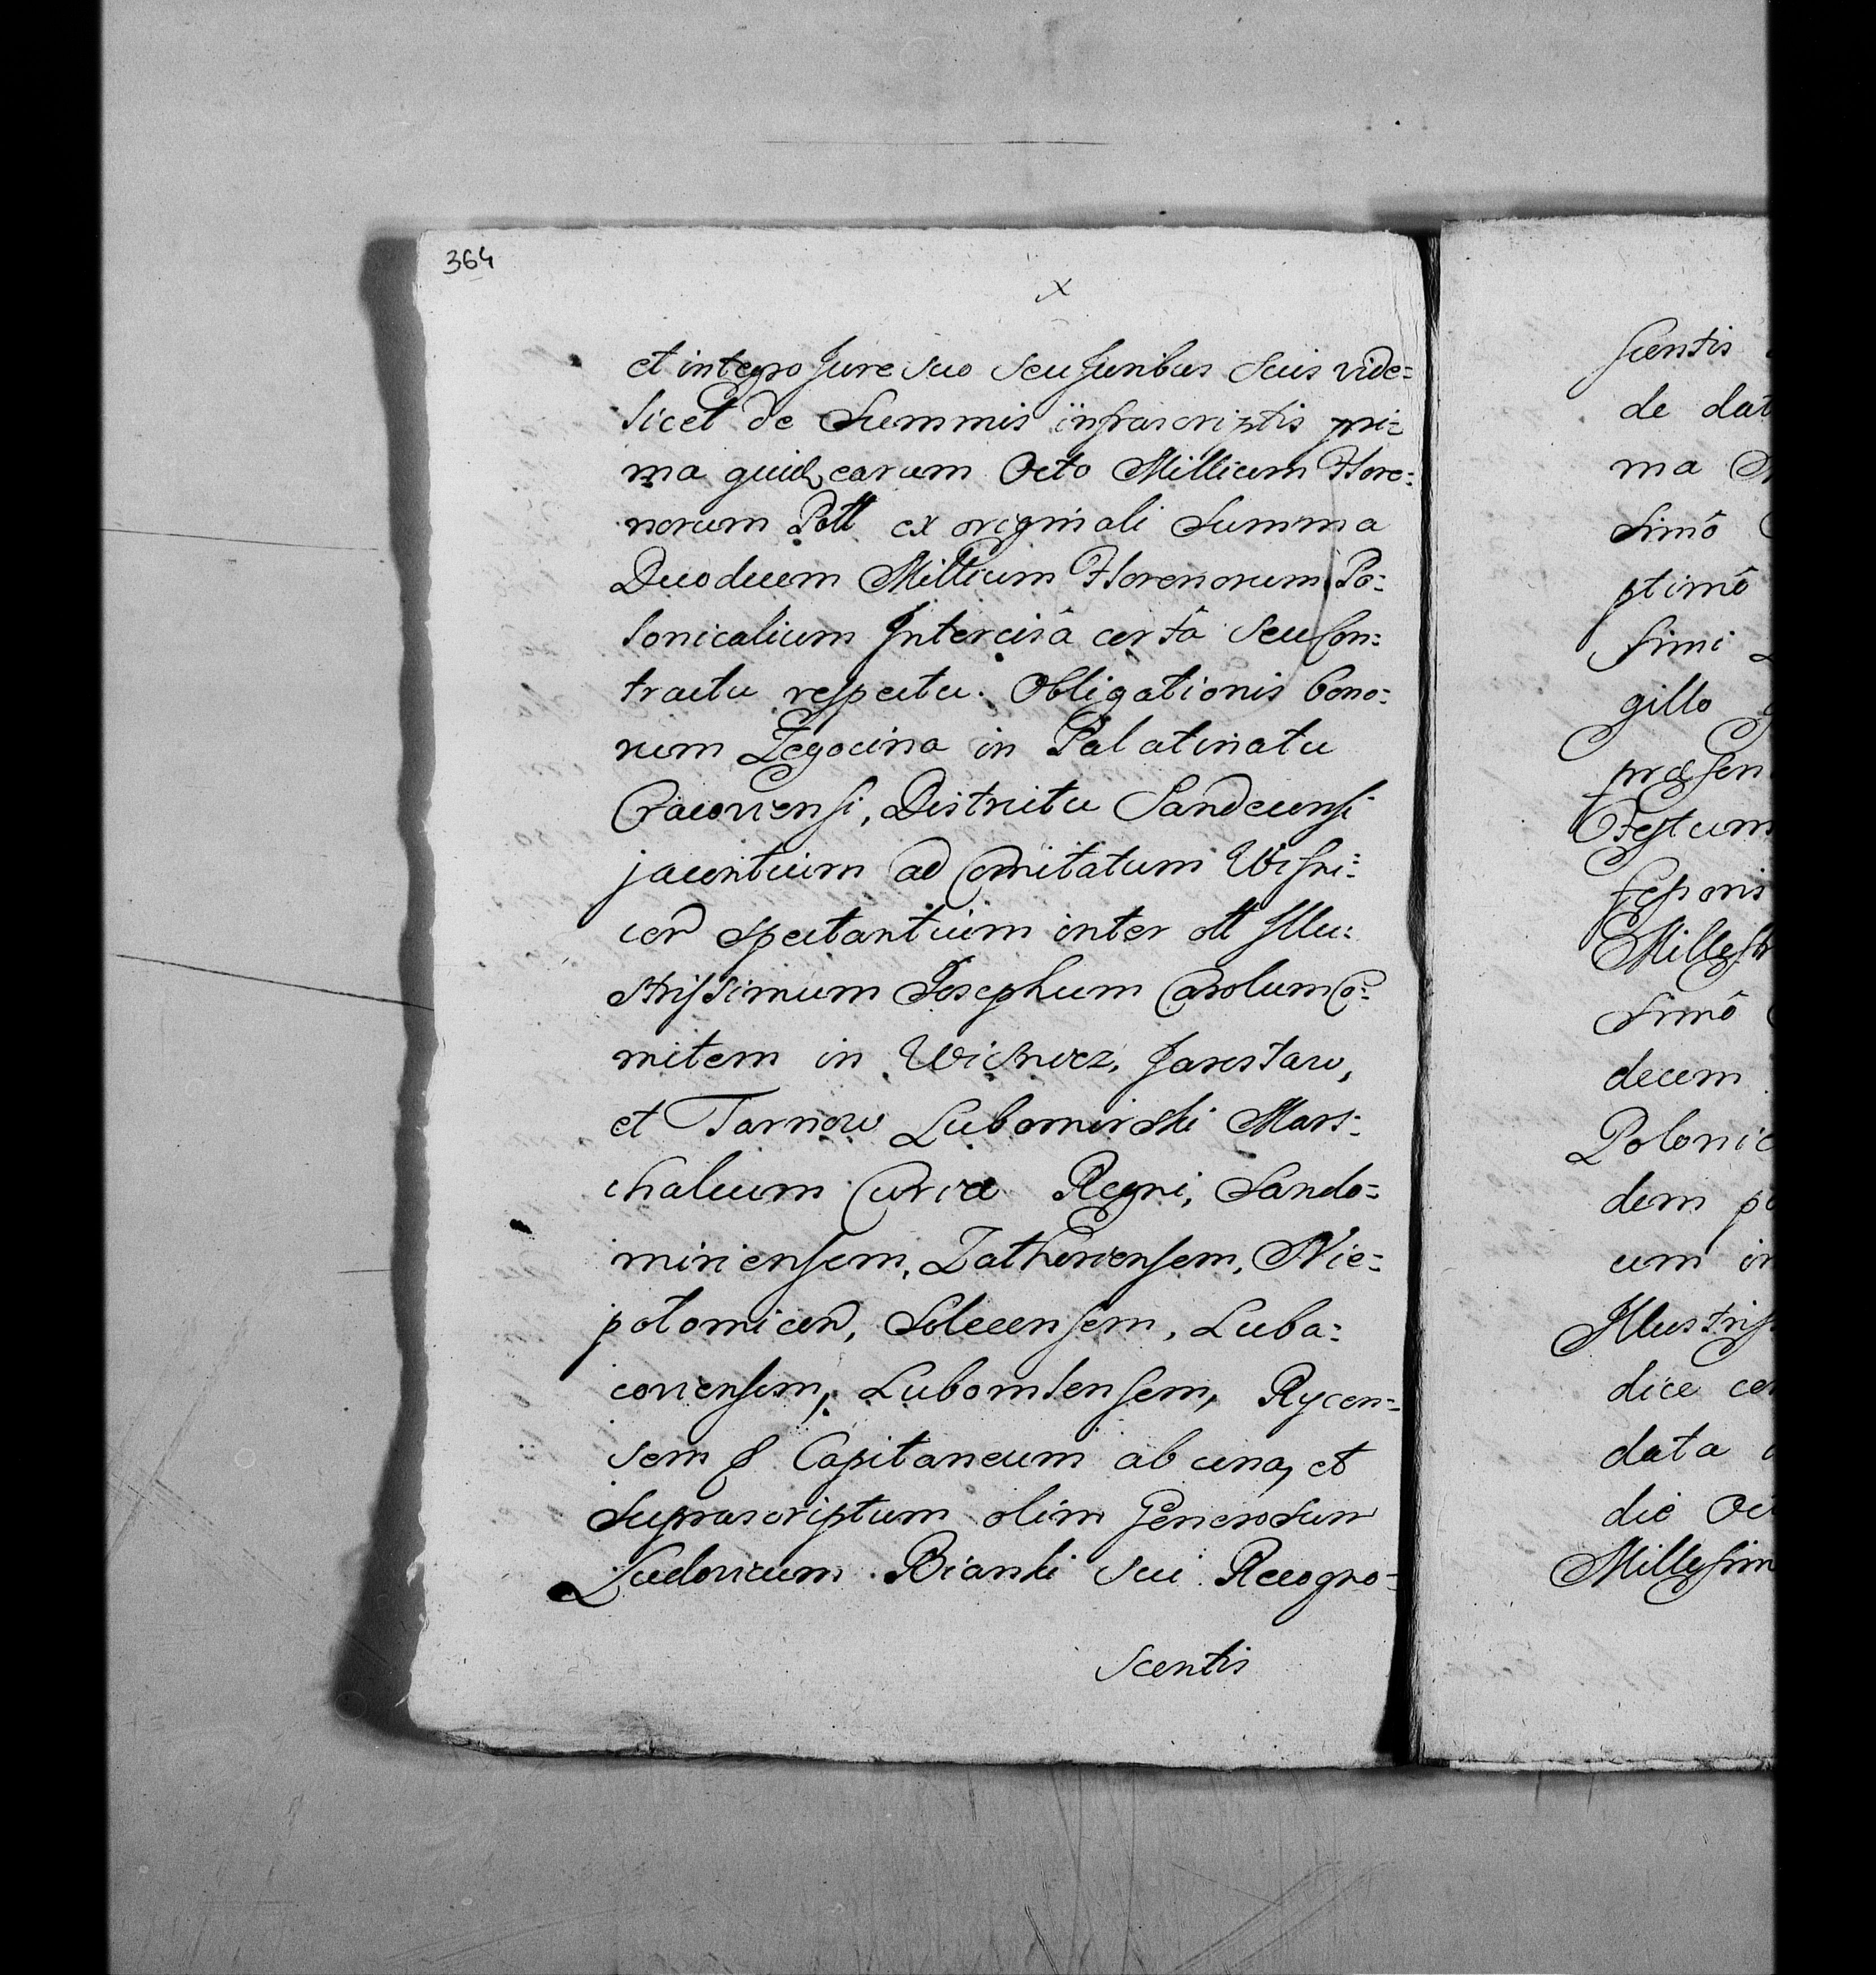 364
x
et integro Jure suo seu Juribus suis vide=
licet de Summis infrascriptis pri=
ma quid earum Octo Millium Flore=
norum Poll ex originali Summa
Duodecem Millium Florenorum Po=
lonicalium Intercisâ certâ seu Con=
tractu respectu Obligationis bono=
rum Zegocina in Palatinatu
Cracoviensi, Districtu Sandecensi
jacentium ad Comitatum Wisni=
cen spectantium inter olt Illu=
strissimum Josephum Carolum Co=
mitem in Wisnicz, Jarostaw,
et Tarnow Lubomirski Mars=
chalcum Curiæ Regni, Sando=
miriensem, Zathoriensem, Nie=
potomicen, Solecensem, Luba=
coviensem, Lubomlensem, Rycen=
sem & Capitaneum ab una, et
Suprascriptum olim Generosum
Ludovicum Bianki sui Recogno=
scentis
scentis
de dat
ma
simô
ptimô
simi
gillo
præsen
Festum
Millesi
simô
decem
Polonic
dem po
cum in
Illustriss
dice cer
data
die Oct
Millesim